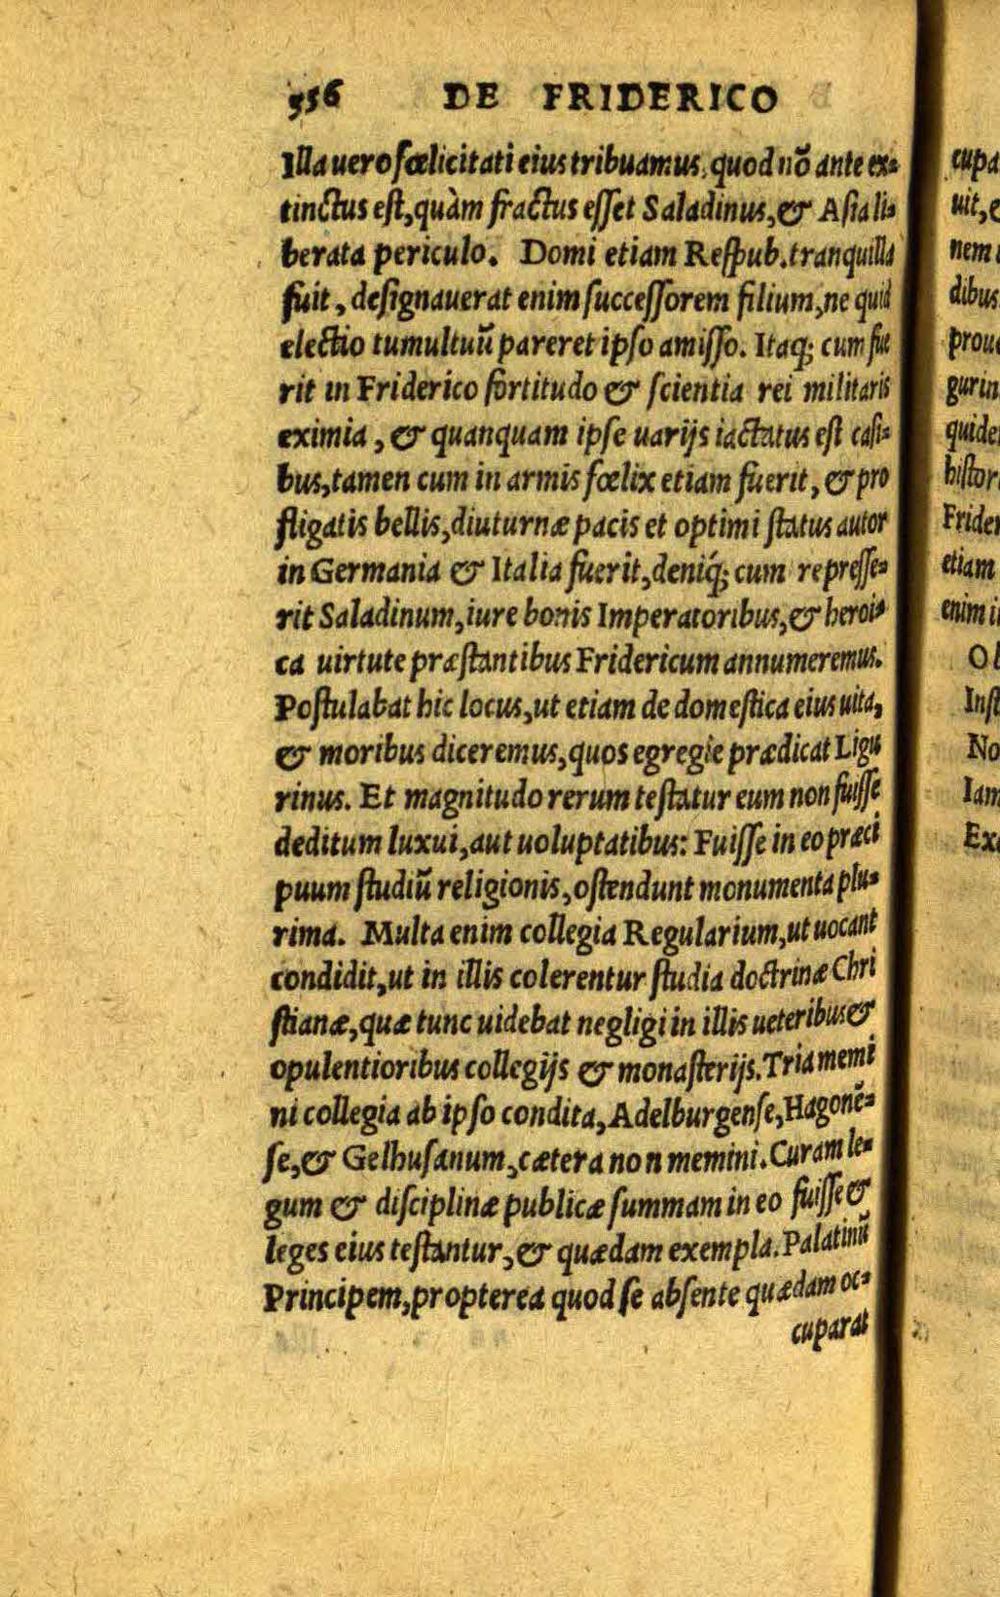 556 DE FRIDERICO
Illa uero fœlicitati eius tribuamus, quod nõ ante ex=
tinctus est, quàm fractus esset Saladinus, & Asia li=
berata periculo. Domi etiam Respub. tranquilla
fuit, designauerat enim successorem filium, ne quid
electio tumultuũ pareret ipso amisso. Itaq; cum fue
rit in Friderico fortitudo & scientia rei militaris
eximia, & quanquam ipse uarijs iactatus est casi=
bus, tamen cum in armis fœlix etiam fuerit, & pro
fligatis bellis, diuturnæ pacis et optimi status autor
in Germania & Italia fuerit, deniq́; cum represse=
rit Saladinum, iure bonis Imperatoribus, & heroi=
ca uirtute præstantibus Fridericum annumeremus.
Postulabat hic locus, ut etiam de domestica eius uita,
& moribus diceremus, quos egregie prædicat Ligu
rinus. Et magnitudo rerum testatur eum non fuisse
deditum luxui, aut uoluptatibus: Fuisse in eo præci
puum studiũ religionis, ostendunt monumenta plu=
rima. Multa enim collegia Regularium, ut uocant
condidit, ut in illis colerentur studia doctrinæ Chri
stianæ, quæ tunc uidebat negligi in illis ueteribus &
opulentioribus collegijs & monasterijs. Tria memi
ni collegia ab ipso condita, Adelburgense, Hagonẽ=
se, & Gelhusanum, cætera non memini. Curam le=
gum & disciplinæ publicæ summam in eo fuisse &
leges eius testantur, & quædam exempla. Palatinũ
Principem, propterea quod se absente quædam oc=
cuparat
cupa
uit, e
nem
dibus
prou
gurin
quide
histor
Frider
etiam
enim i
Ol
Inst
No
Iam
Ex